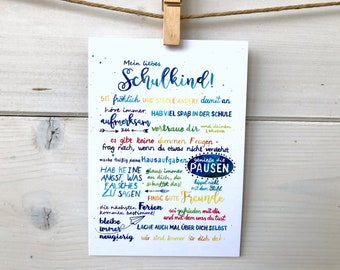 Mein liebes
Schulkind!
SEI fröhlich UND STECKE ANDERE damit an
höre immer HAB VIEL SPAß IN DER SCHULE
aufmerksam
zu vertraue dir und deinen Lehrern
es gibt keine dummen Fragen -
frag nach, wenn du etwas nicht verstehst
mache fleißig deine Hausaufgaben genieße die
PAUSEN
HAB KEINE
ANGST, WAS
FALSCHES
ZU SAGEN
glaub immer
an dich, du
schaffst das!
FINDE GUTE Freunde
die nächsten Ferien
kommen bestimmt!
sei zufrieden mit dir
und mit dem was du tust
bleibe
immer
neugierig
LACHE AUCH MAL ÜBER DICH SELBST
wir sind immer für dich da!